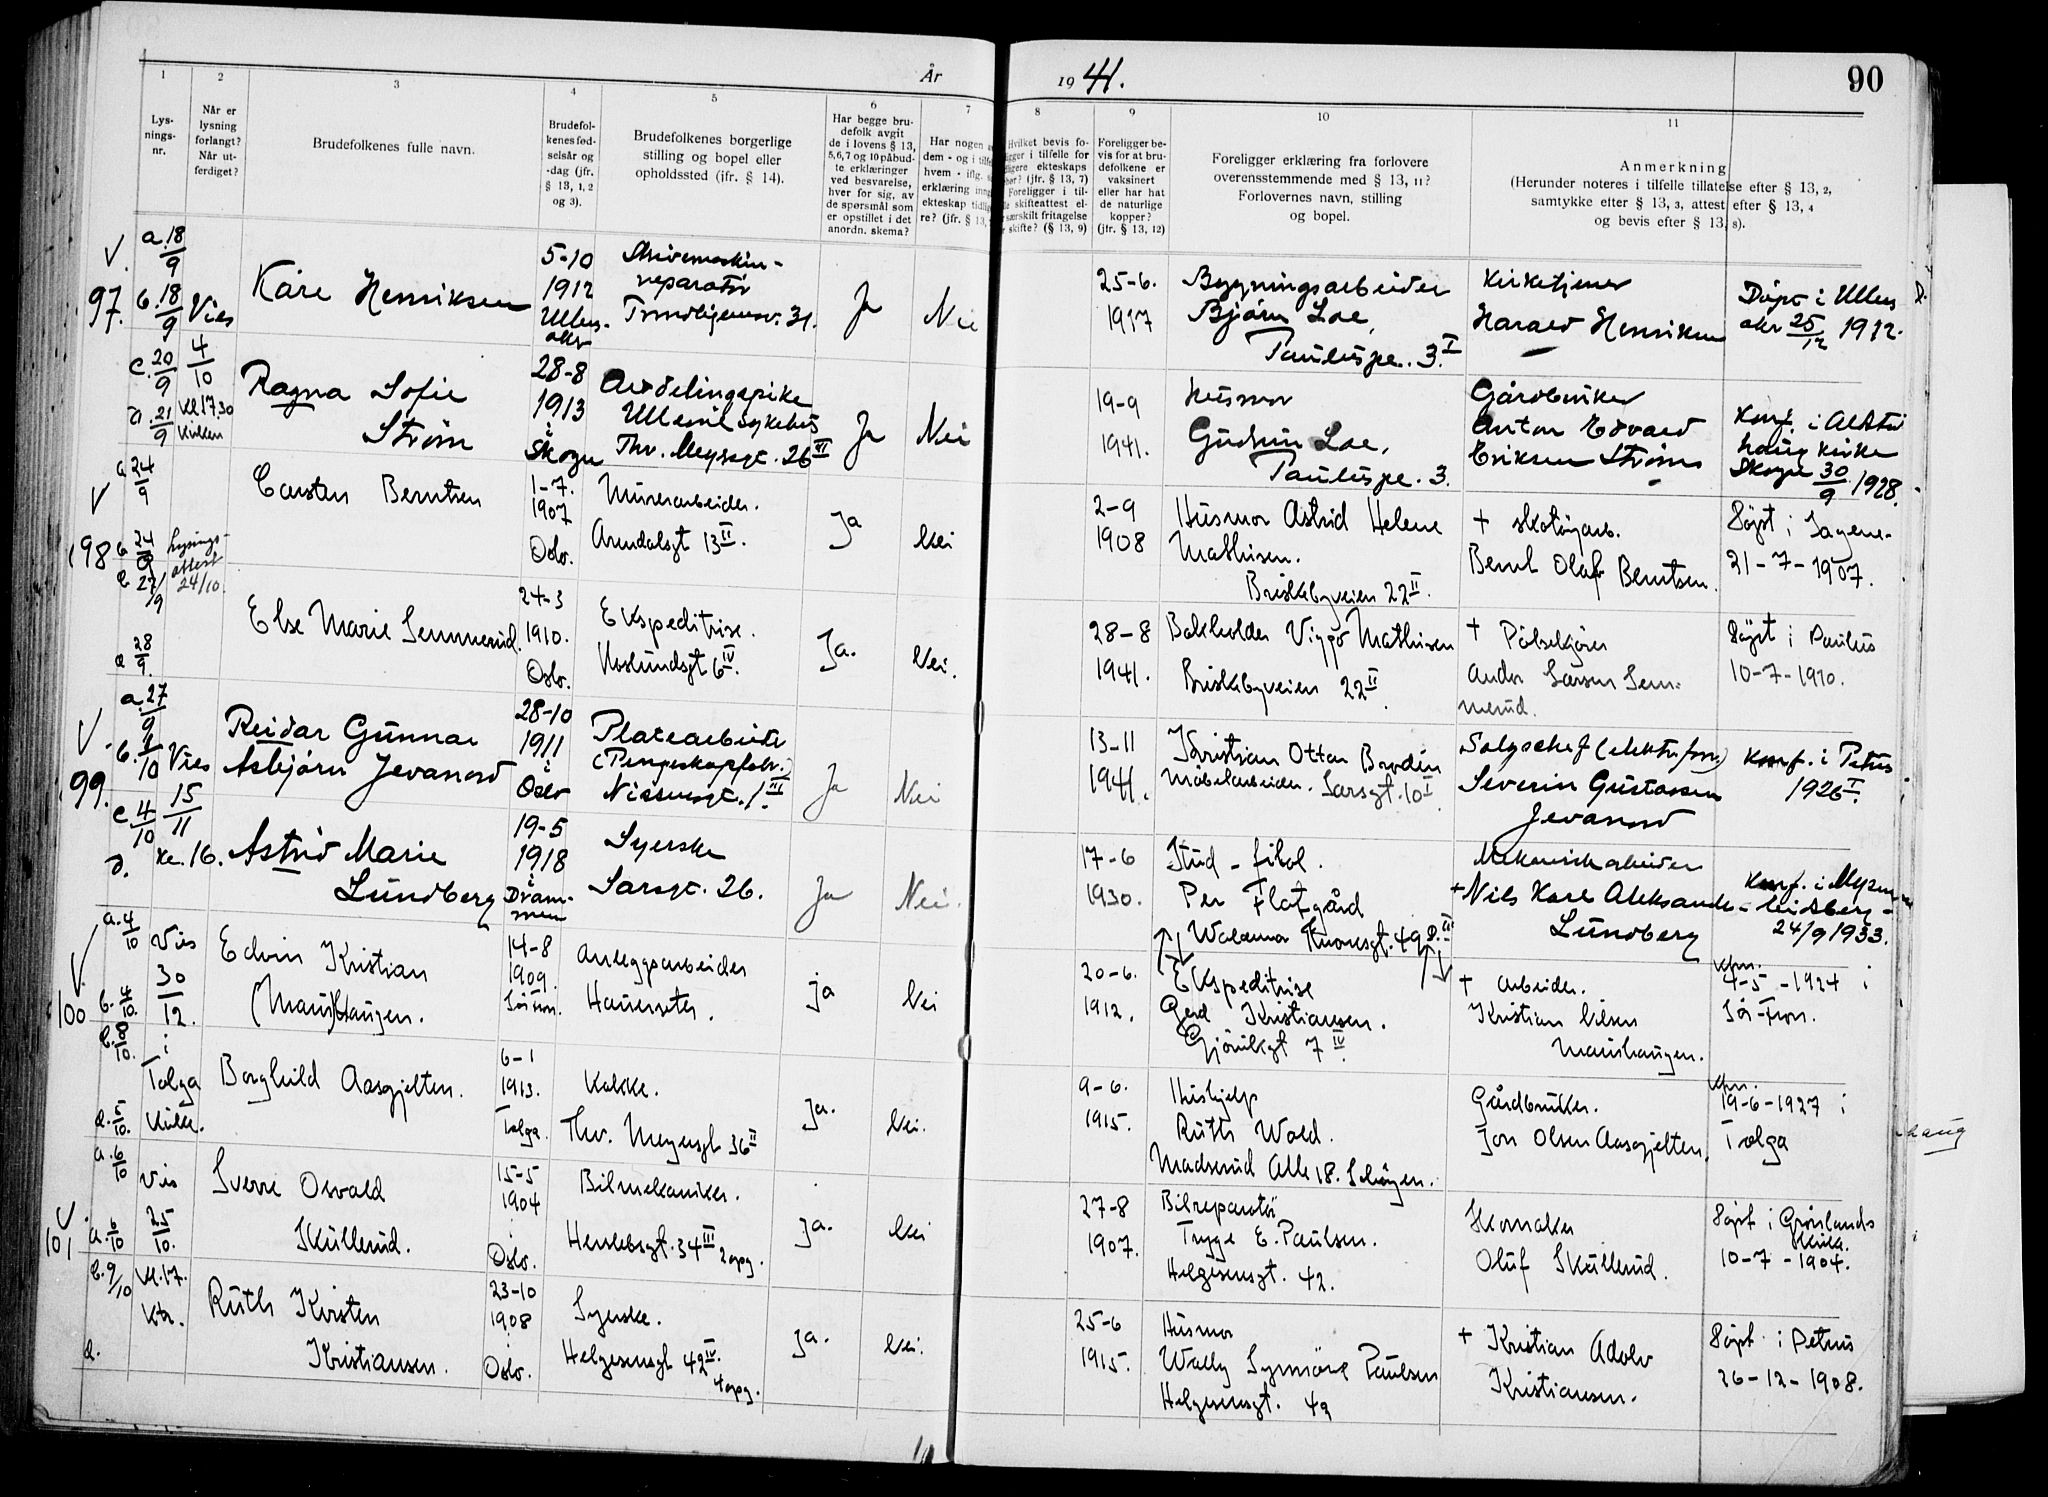 År
19 41.
90
1
2
3
4
5
6
7
8
9
10
11
Lys-
nings-
nr.
Når er
lysning
forlangt?
Når ut-
ferdiget?
Brudefolkenes fulle navn.
Brudefol-
kenes fød-
selsår og
-dag (jfr.
§ 13, 1, 2
og 3).
Brudefolkenes borgerlige
stilling og bopel eller
opholdssted (jfr. § 14).
Har begge bru-
defolk avgit
de i lovens § 13,
5, 6, 7 og 10 påbud-
te erklæringer
ved besvarelse,
hver for sig, av
de spørsmål som
er opstillet i det
anordn. skema?
Har nogen
dem - og i tilf
hvem - iflg.
erklæring inng
ekteskap tidlig
re? (jfr. § 13,
Hvilket bevis fo-
igger i tilfelle for
ligere ekteskaps
hør? (jfr. § 13, 7)
Foreligger i til-
le skifteattest el-
særskilt fritagelse
r skifte? (§ 13, 9)
Foreligger be-
vis for at bru-
defolkene er
vaksinert
eller har hat
de naturlige
kopper?
(jfr. § 13, 12)
Foreligger erklæring fra forlovere
overensstemmende med § 13, 11?
Forlovernes navn, stilling
og bopel.
Anmerkning
(Herunder noteres i tilfelle tillatelse efter § 13, 2,
samtykke efter § 13, 3, attest efter § 13, 4
og bevis efter § 13, 8).
V.
97.
a. 18/9
b. 18/9 Vies
c. 20/9 4/10
d. 21/9 Kl 17.30
Kirken
Kåre Henriksen
5-10
1912
Ullens-
aker
Skrivemaskin-
reparatør
Trondhjemsv. 31.
Ja
Nei
25-6.
1917
Bygningsarbeider
Bjørn Loe,
Paulus pl. 3 I
Kirketjener
Harald Henriksen
Døpt i Ullens
aker 25/12 1912.
Ragna Sofie
Strøm
28-8
1913
i
Skogn
Avdelingspike
Ullevål sykehus
Thv. Meyersgt. 26 VI
Ja
Nei
19-9
1941.
Husmor
Gudrun Loe,
Paulus pl. 3.
Gårdbruker
Anton Edvard
Eriksen Strøm
Konf. i Alstad
haug kirke
Skogn 30/9 1928.
V
98
a 24/9
b 24/9
c 27/9
d 28/9.
Lysings-
attest
24/10.
Carsten Berntsen
1-7.
1907
Oslo.
Murerarbeider.
Arendalsgt 13 II.
Ja
Nei
2-9
1908
Husmor Astrid Helene
Mathisen.
Briskebyveien 22 II.
+ skotøyarb.
Bernt Olaf Berntsen.
Døpt i Sagene
21-7-1907.
Else Marie Semmerud.
24-3
1910.
Oslo.
Ekspeditrise.
6 IV.
Ja.
Nei.
28-8
1941.
Bokholder Viggo Mathisen
Briskebyveien 22 II.
+ Pølsekjører
Anders Larsen Sem-
merud.
Døpt i Paulus
10-7-1910.
V.
99.
a. 27/9
b. 1/10 Vies
15/11
c. 4/10
d. Kl. 16.
Reidar Gunnar
Asbjørn Jevanord
28-10
1911
i
Oslo
Platearbeider
(Pengeskapfabr.)
Nissensgt. 1. III
Ja
Nei
13-11
1941.
Kristian Otton Brodin
Møbelarbeider. Sarsgt. 10 I
Salgschef (elektr. forr.)
Severin Gustavsen
Jevanord
Konf. i Petrus
1926 I.
Astrid Marie
Lundberg
19-5
1918
i
Dram-
men
Syerske
Sarsgt. 26.
Ja
Nei.
17-6
1930.
Stud. filol.
Per Flatgård
Waldemar Thranesgt. 49 D. III
Mekanisk arbeider
+ Nils Karl Aleksander
Lundberg
Konf. i Mysen
24/9 1933.
V
100
a. 4/10
b. 4/10.
c. 8/10.
d. 5/10.
Vies
30
12.
i
Tolga
kirke.
Edvin Kristian
(Maus)haugen.
14-8
1909.
Sør Fron.
Anleggsarbeider
Haugesetr.
ja
Nei
20-6.
1912.
Ekspeditrise
Gerd Kristiansen.
Gjøvikgt 7 IV.
+ arbeider.
Kristian Nilsen
Maushaugen.
4-5-1924 i
Sør-Fron.
Borghild Aasgjelten.
6-1
1913.
Tolga.
Kokke.
Thv. Meyersgt 36 II
Ja.
Nei.
9-6.
1915.
Hushjelp
Ruth Wold.
Madserud Alle 18. Skøyen.
Gårdbruker.
Jon Olsen Aasgjelten.
19-6-1927 i
Tolga
haug
V.
101
a. 6/10
a. 6/10
c. 9/10
d.
Vies
25/10.
Kl. 17.
Sverre Osvald
Skullerud.
15-5
1904
Oslo.
Bilmekaniker.
Herslebsgt. 34 III 2 opg.
Ja.
Nei
27-8
1907.
Bilreparatør
Trygve E. Paulsen.
Helgesensgt. 42.
Skomaker
Oluf Skullerud.
Døpt i Grønlands
Kirk.
10-7-1904.
Ruth Kirsten
Kristiansen.
23-10
1908
Oslo.
Syerske.
Helgesensgt 42 IV.
4 opg.
Ja.
Nei.
25-6
1915.
Husmor
Wally Synnøve Paulsen
Helgesensgt. 42
+ Kristian Adolv
Kristiansen.
Døpt i Petrus
26-12-1908.